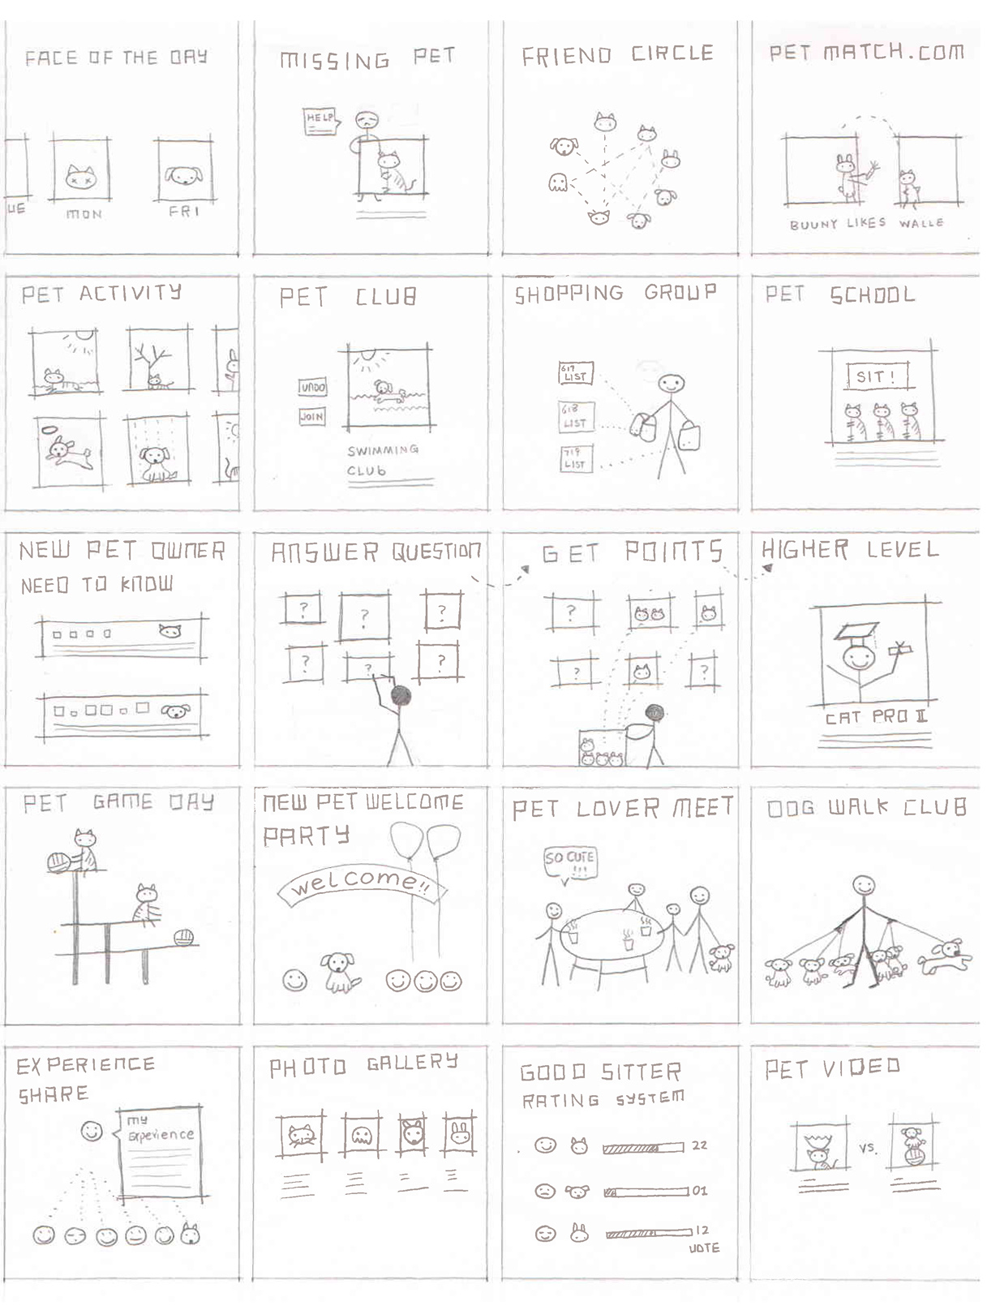 FACE OF THE DAY
UE
MON
FRI
MISSING PET
HELP
FRIEND CIRCLE
PET MATCH.COM
BUUNY LIKES WALLE
PET ACTIVITY
PET CLUB
UNDO
JOIN
SWIMMING
CLUB
SHOPPING GROUP
617
LIST
618
LIST
719
LIST
PET SCHOOL
SIT!
NEW PET OWNER
NEED TO KNOW
ANSWER QUESTION
? ? ?
? ? ?
GET POINTS
?
? ?
HIGHER LEVEL
CAT PRO II
PET GAME DAY
NEW PET WELCOME
PARTY
welcome!!
PET LOVER MEET
SO CUTE
!!!
DOG WALK CLUB
EXPERIENCE
SHARE
my
experience
PHOTO GALLERY
GOOD SITTER
RATING SYSTEM
22
01
12
VOTE
PET VIDEO
VS.